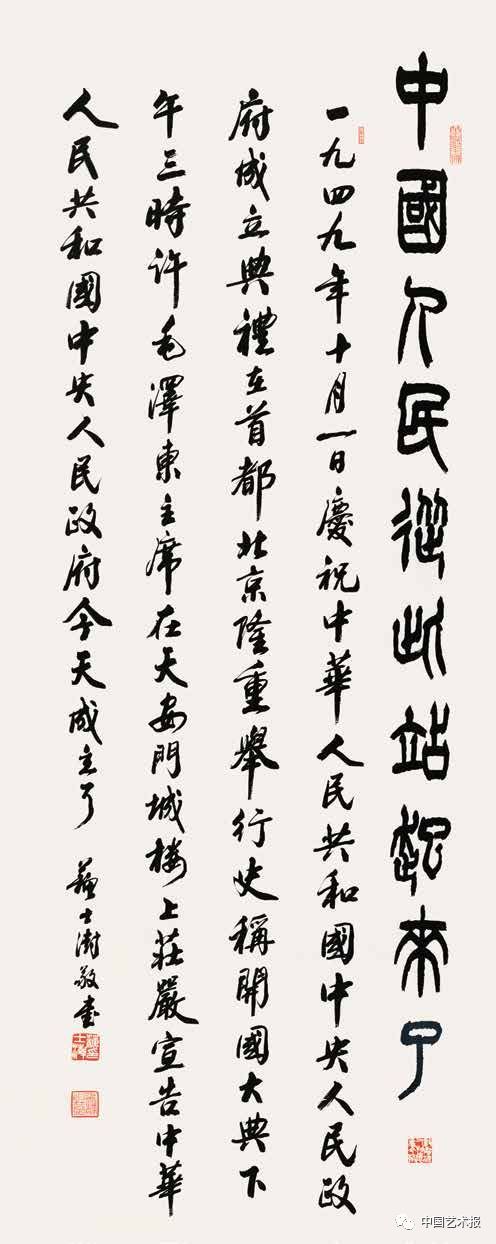 中國人民從此站起來了
一九四九年十月一日慶祝中華人民共和國中央人民政
府成立典禮在首都北京隆重舉行史稱開國大典下
午三時許毛澤東主席在天安門城樓上莊嚴宣告中華
人民共和國中央人民政府今天成立了
蘇士澍敬書
中国艺术报